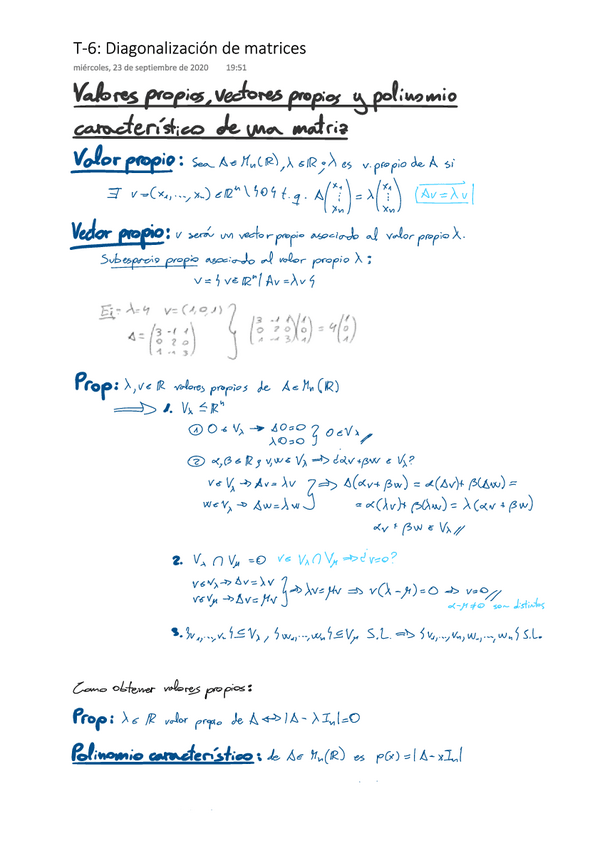 T-6: Diagonalización de matrices
miércoles, 23 de septiembre de 2020 19:51
Valores propios, vectores propios y polinomio
característico de una matriz
Valor propio: Sea A ∈ Mn(ℝ), λ ∈ ℝ; λ es v. propio de A si
∃ v=(x₁,...,xₙ) ∈ ℝⁿ \ {0} t.q. A(x₁ ⋮ xₙ) = λ(x₁ ⋮ xₙ) (Av=λv)
Vector propio: v será un vector propio asociado al valor propio λ.
Subespacio propio asociado al valor propio λ:
V={v∈ℝⁿ/ Av=λv}
Ej: λ=4 v=(1,0,1)
A=(3 -1 1
0 2 0
1 -1 3)
(3 -1 1
0 2 0
1 -1 3)(1 0 1) = 4(1 0 1)
Prop: λ,v∈ℝ valores propios de A∈Mn(ℝ)
⇒ 1. Vλ ≤ ℝⁿ
① 0 ∈ Vλ → A0=0
λ0=0 } 0∈Vλ //
② α,β∈ℝ; v,w∈Vλ ⇒ ¿αv+βw ∈ Vλ?
v∈Vλ → Av=λv
w∈Vλ → Aw=λw } ⇒ A(αv+βw) = α(Av)+β(Aw) =
= α(λv)+β(λw) = λ(αv+βw)
αv+βw ∈ Vλ //
2. Vλ ∩ Vμ =0 v∈Vλ∩Vμ ⇒ ¿v=0?
v∈Vλ → Av=λv
v∈Vμ → Av=μv } ⇒ λv=μv ⇒ v(λ-μ)=0 ⇒ v=0 //
α-μ≠0 son distintos
3. {v₁,...,vₙ}≤Vλ, {w₁,...,wₙ}≤Vμ S.L. ⇒ {v₁,...,vₙ,w₁,...,wₙ} S.L.
Como obtener valores propios:
Prop: λ∈ℝ valor propio de A ⇔ |A-λIn|=0
Polinomio característico: de A∈Mn(ℝ) es p(x)=|A-xIn|